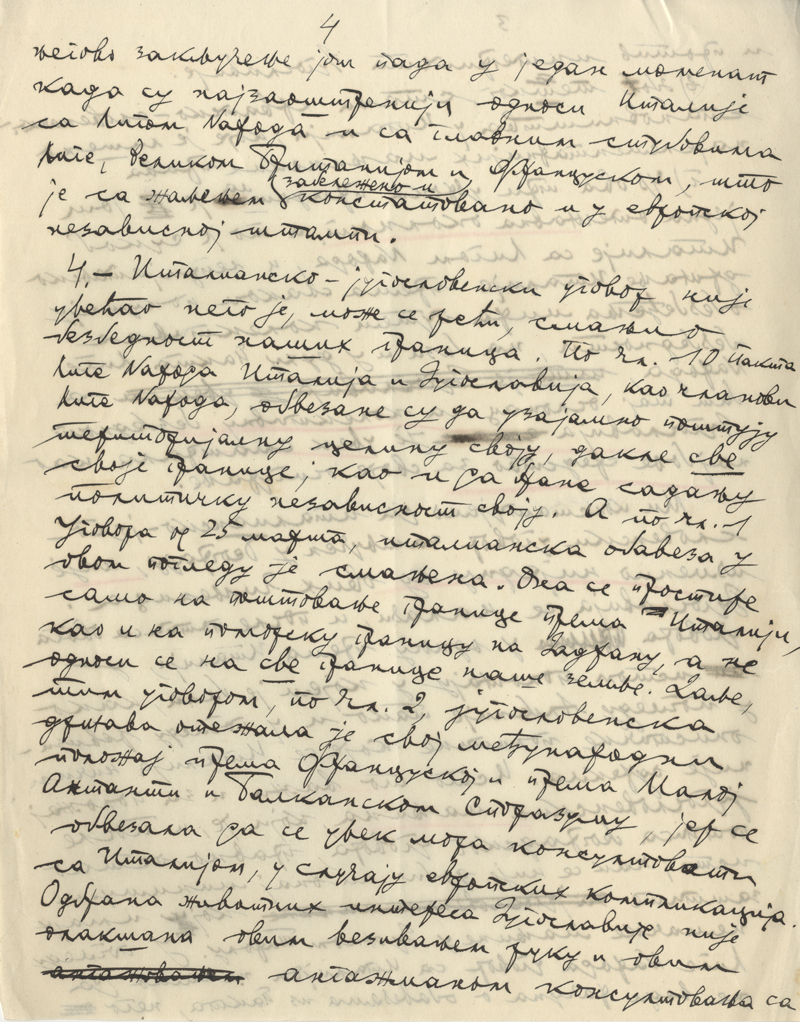 4
његово закључење још пада у један моменат
када су најзаоштренији односи Италије
са Лигом Народа и са главним стубовима
Лиге, Великом Британијом и Француском, што
забележено и
је са жаљењем констатовано и у европској
независној штампи.
4.– Италианско-југословенски уговор није
увећао него је, може се рећи, смањио
безбедност наших граница. По чл. 10 Пакта
Лиге Народа Италија и Југославија, као чланови
Лиге Народа, обвезане су да узајамно поштују
територијалну целину своју, дакле све
своје границе; као и да бране садању
политичку независност своју. А по чл. 1
Уговора од 25 марта, италианска обавеза у
овом погледу је смањена. Она се простире
само на поштовање границе према Италији,
као и на поморску границу на Јадрану, а не
односи се на све границе наше земље. Даље,
тим уговором, по чл. 2, југословенска
држава отежала је свој међународни
положај према Француској и према Малој
Антанти и Балканском Споразуму, јер се
обвезала да се увек мора консултовати
са Италијом, у случају европских компликација.
Одбрана животних интереса Југославије није
олакшана овим везивањем руку и овим
ангажманом консултовања са